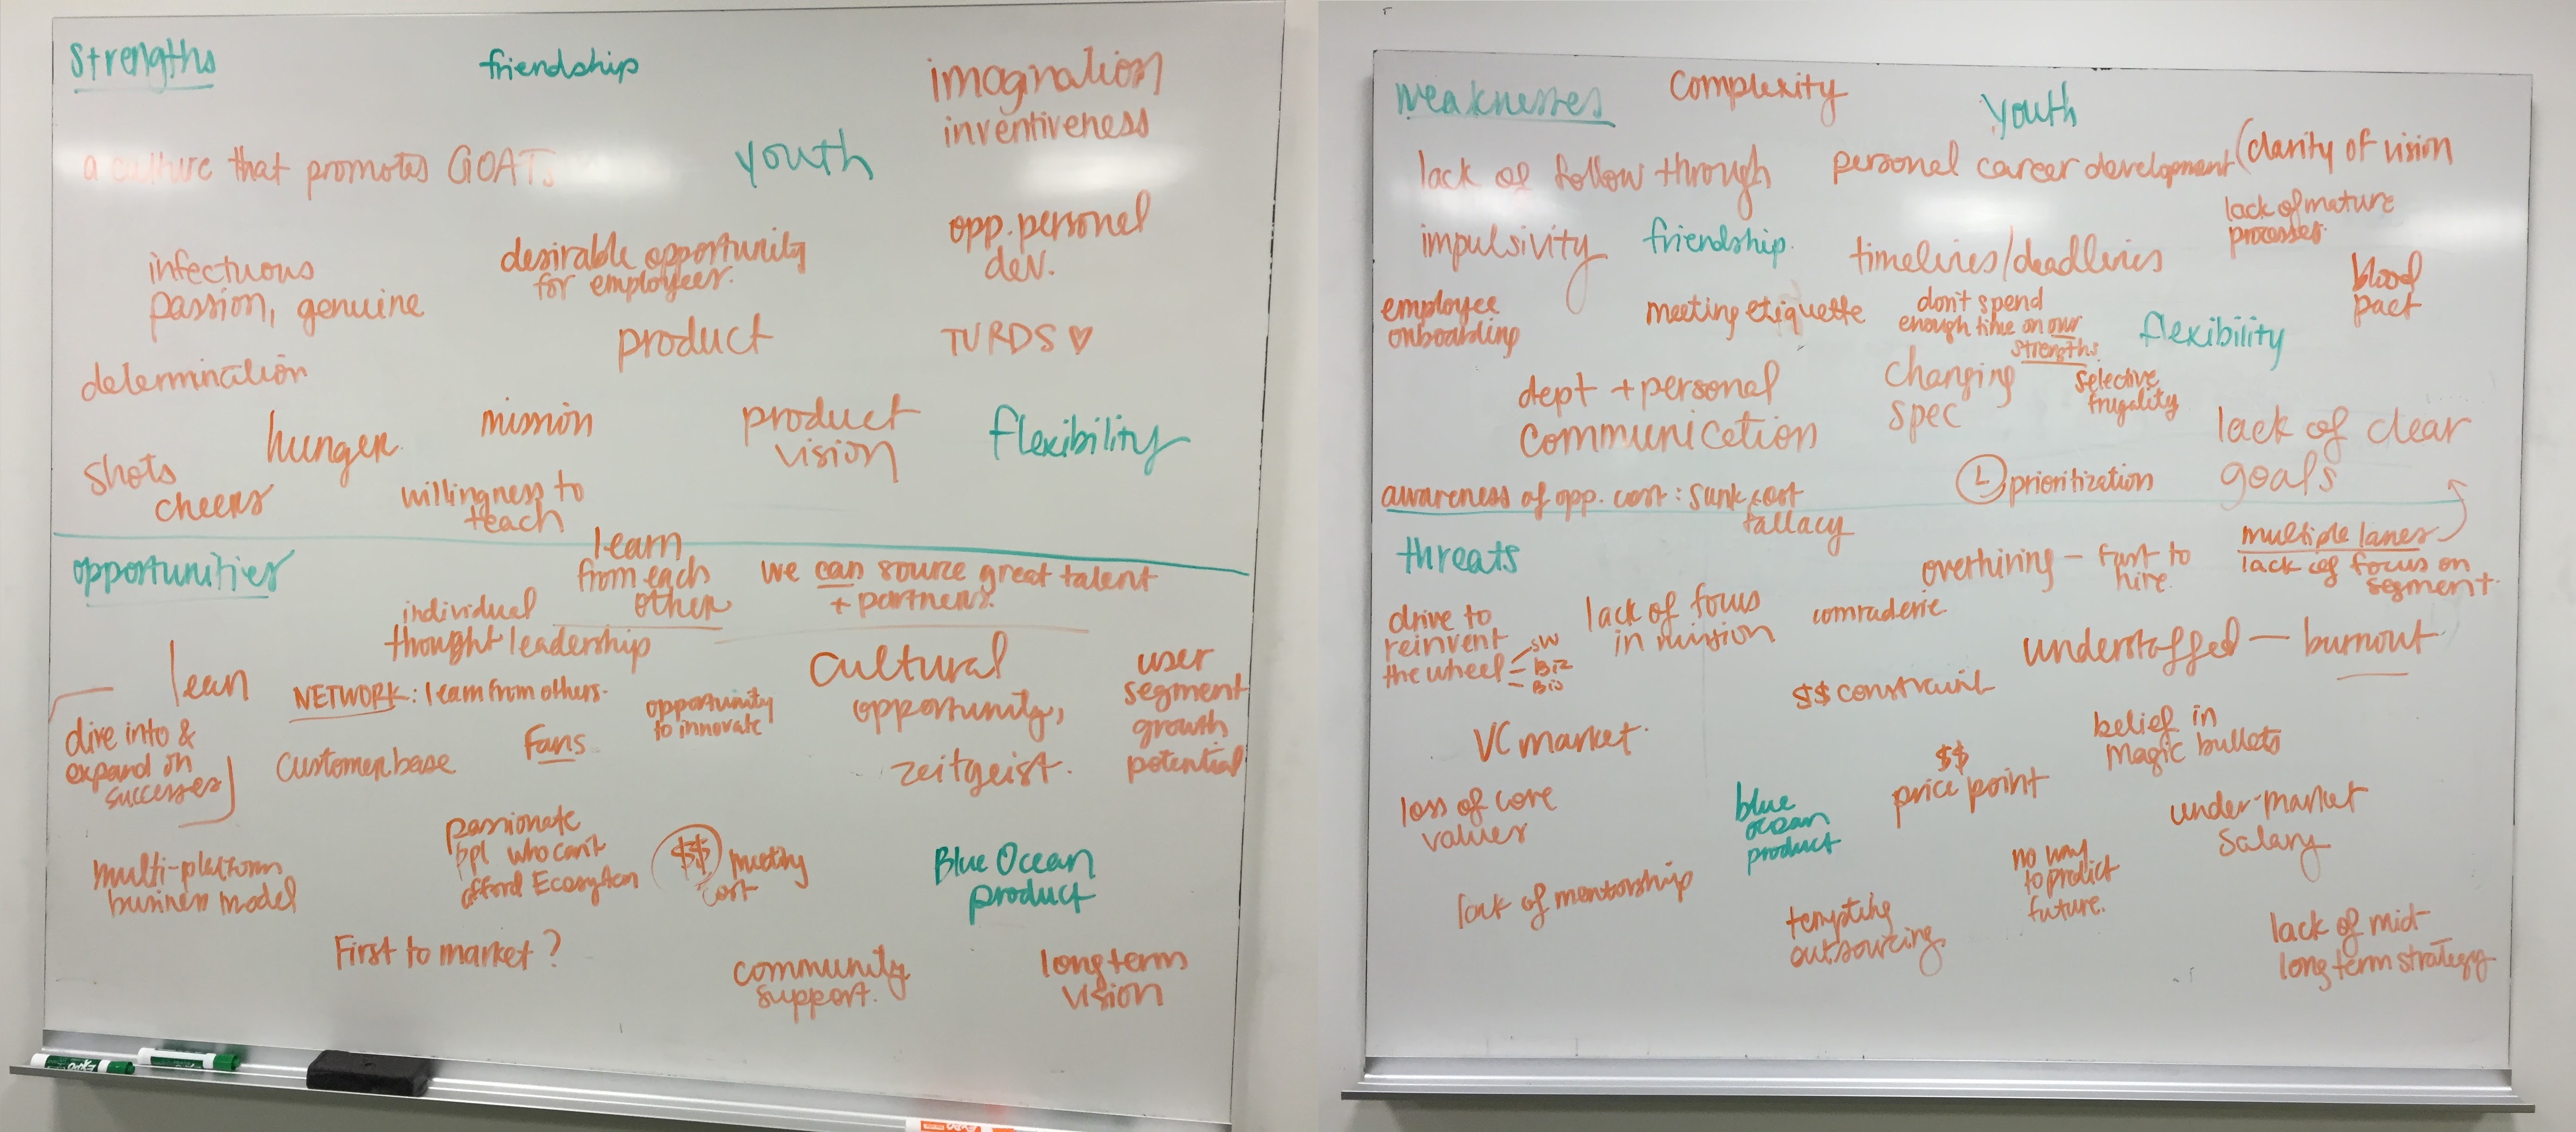 Strengths
friendship
imagination
inventiveness
a culture that promotes GOATs
youth
infectuous
passion, genuine
desirable opportunity
for employees.
opp. personel
dev.
product
TURDS ♡
determination
hunger
mission
product
vision
flexibility
shots
cheers
willingness to
teach
opportunities
learn
from each
other
we can source great talent
+ partners.
individual
thought leadership
lean
NETWORK: learn from others.
opportunity
to innovate
cultural
opportunity,
zeitgeist.
user
segment
growth
potential
dive into &
expand on
successes
customer base
fans
multi-platform
business model
passionate
ppl who can't
afford Ecosystem
$$
cost
Blue Ocean
product
First to market?
community
support.
long term
vision
weaknesses
complexity
youth
lack of follow through
personal career development
(clarity of vision
impulsivity
friendship.
timelines/deadlines
lack of mature
processes.
blood
pact
employee
onboarding
meeting etiquette
don't spend
enough time on our
strengths
flexibility
dept + personal
communication
changing
spec
selective
frugality
lack of clear
goals
awareness of opp. cost: sunk cost
fallacy
L prioritization
threats
overhiring – fast to
hire.
multiple lanes
lack of focus on
segment.
drive to
reinvent
the wheel
SW
Biz
Bio
lack of focus
in mission
comraderie.
understaffed — burnout
$$ constraint
VC market.
belief in
Magic bullets
$$
price point
loss of core
values
blue
ocean
product
under-market
salary
lack of mentorship
no way
to predict
future.
tempting
outsourcing
lack of mid-
long term strategy